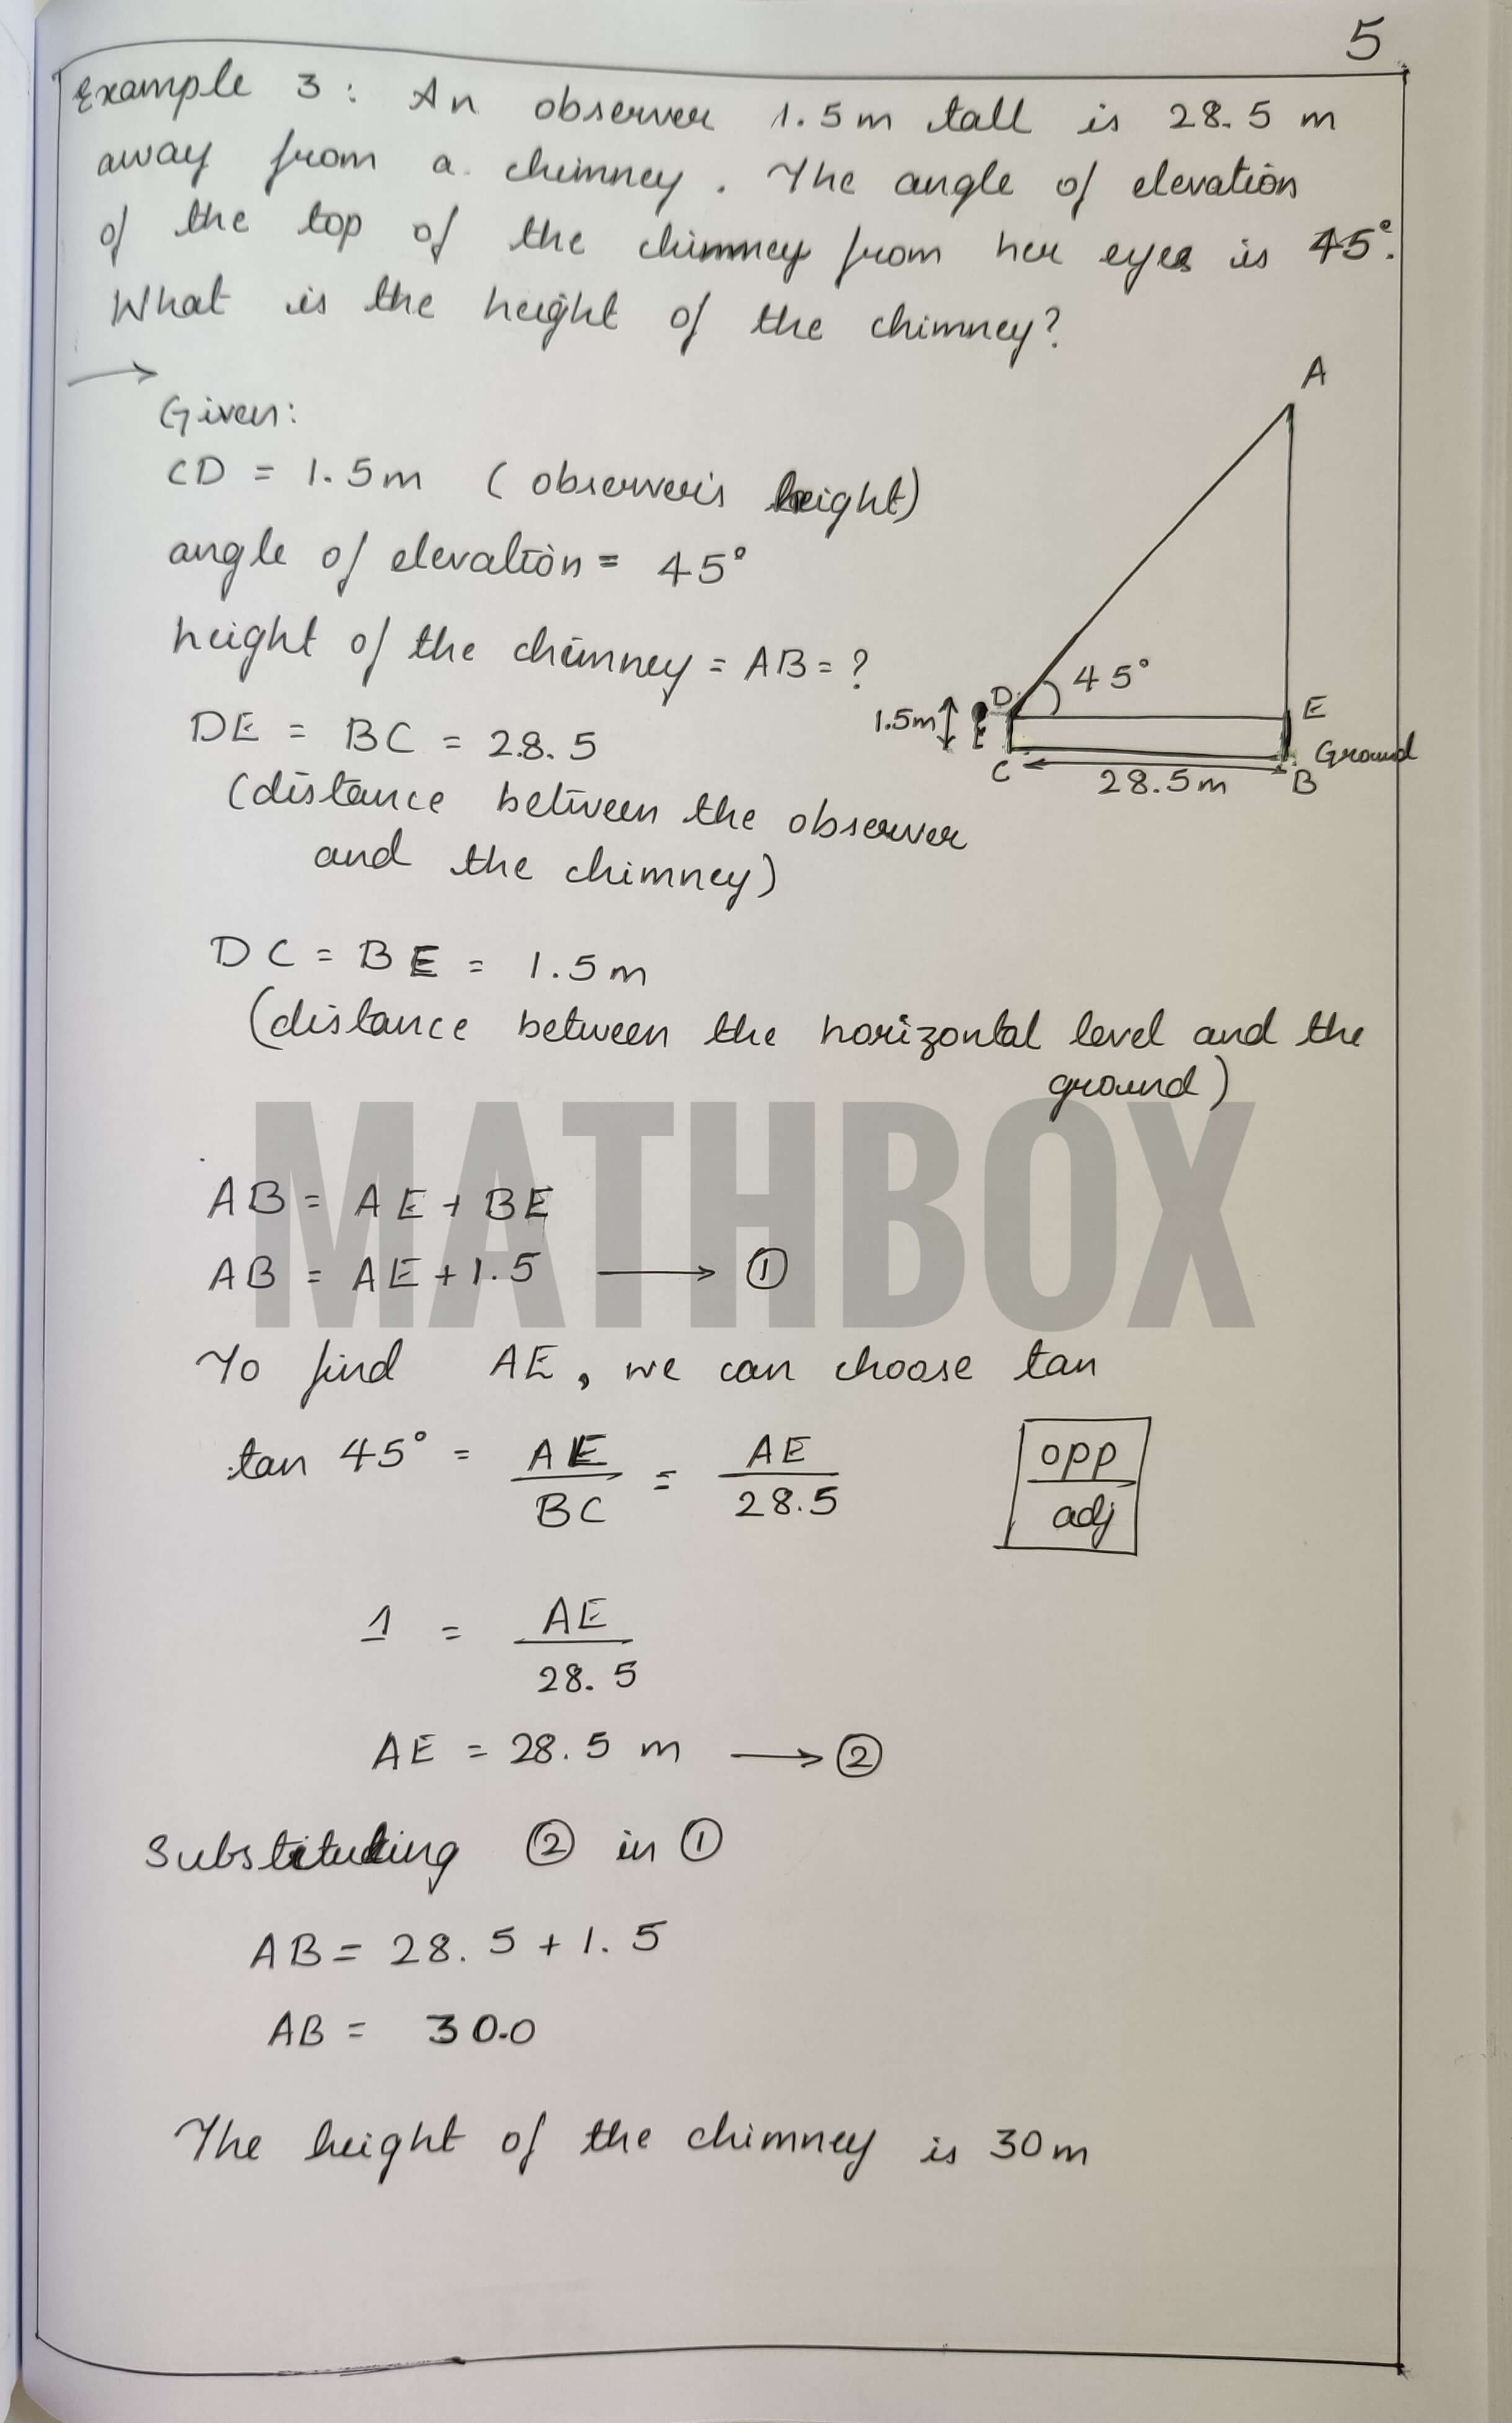 5
Example 3 : An observer 1.5m tall is 28.5 m
away from a chimney. The angle of elevation
of the top of the chimney from her eyes is 45°.
What is the height of the chimney?
→
Given:
CD = 1.5m (observer's height)
angle of elevation = 45°
height of the chimney = AB = ?
DE = BC = 28.5
(distance between the observer
and the chimney)
A
D
45°
1.5m
E
Ground
C
28.5m
B
DC = BE = 1.5m
(distance between the horizontal level and the
ground)
MATHBOX
AB = AE + BE
AB = AE + 1.5 → ①
To find AE, we can choose tan
tan 45° = AE/BC = AE/28.5
opp/adj
1 = AE/28.5
AE = 28.5 m → ②
Substituting ② in ①
AB = 28.5 + 1.5
AB = 30.0
The height of the chimney is 30m